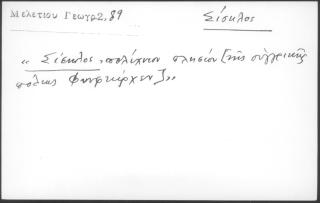 Μελετίου Γεωγρ2,89
Σίσκλος
« Σίσκλος, πολίχνιον πλησίον [τῆς οὑγγρικῆς
πόλεως Φυνφκίρχεν]»